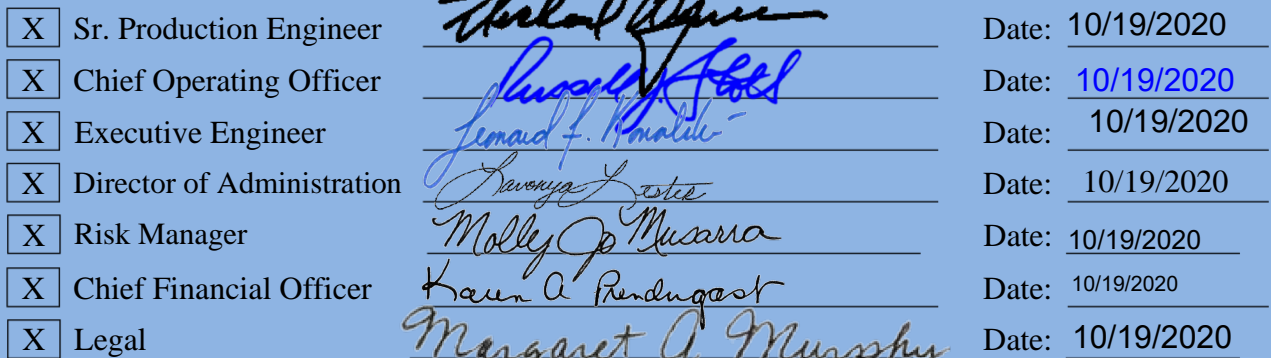 X Sr. Production Engineer Date: 10/19/2020
X Chief Operating Officer Russell J. Date: 10/19/2020
X Executive Engineer Leonard F. Date: 10/19/2020
X Director of Administration Lavonya Lester Date: 10/19/2020
X Risk Manager Molly Jo Musarra Date: 10/19/2020
X Chief Financial Officer Karen A Prendergast Date: 10/19/2020
X Legal Margaret A. Murphy Date: 10/19/2020